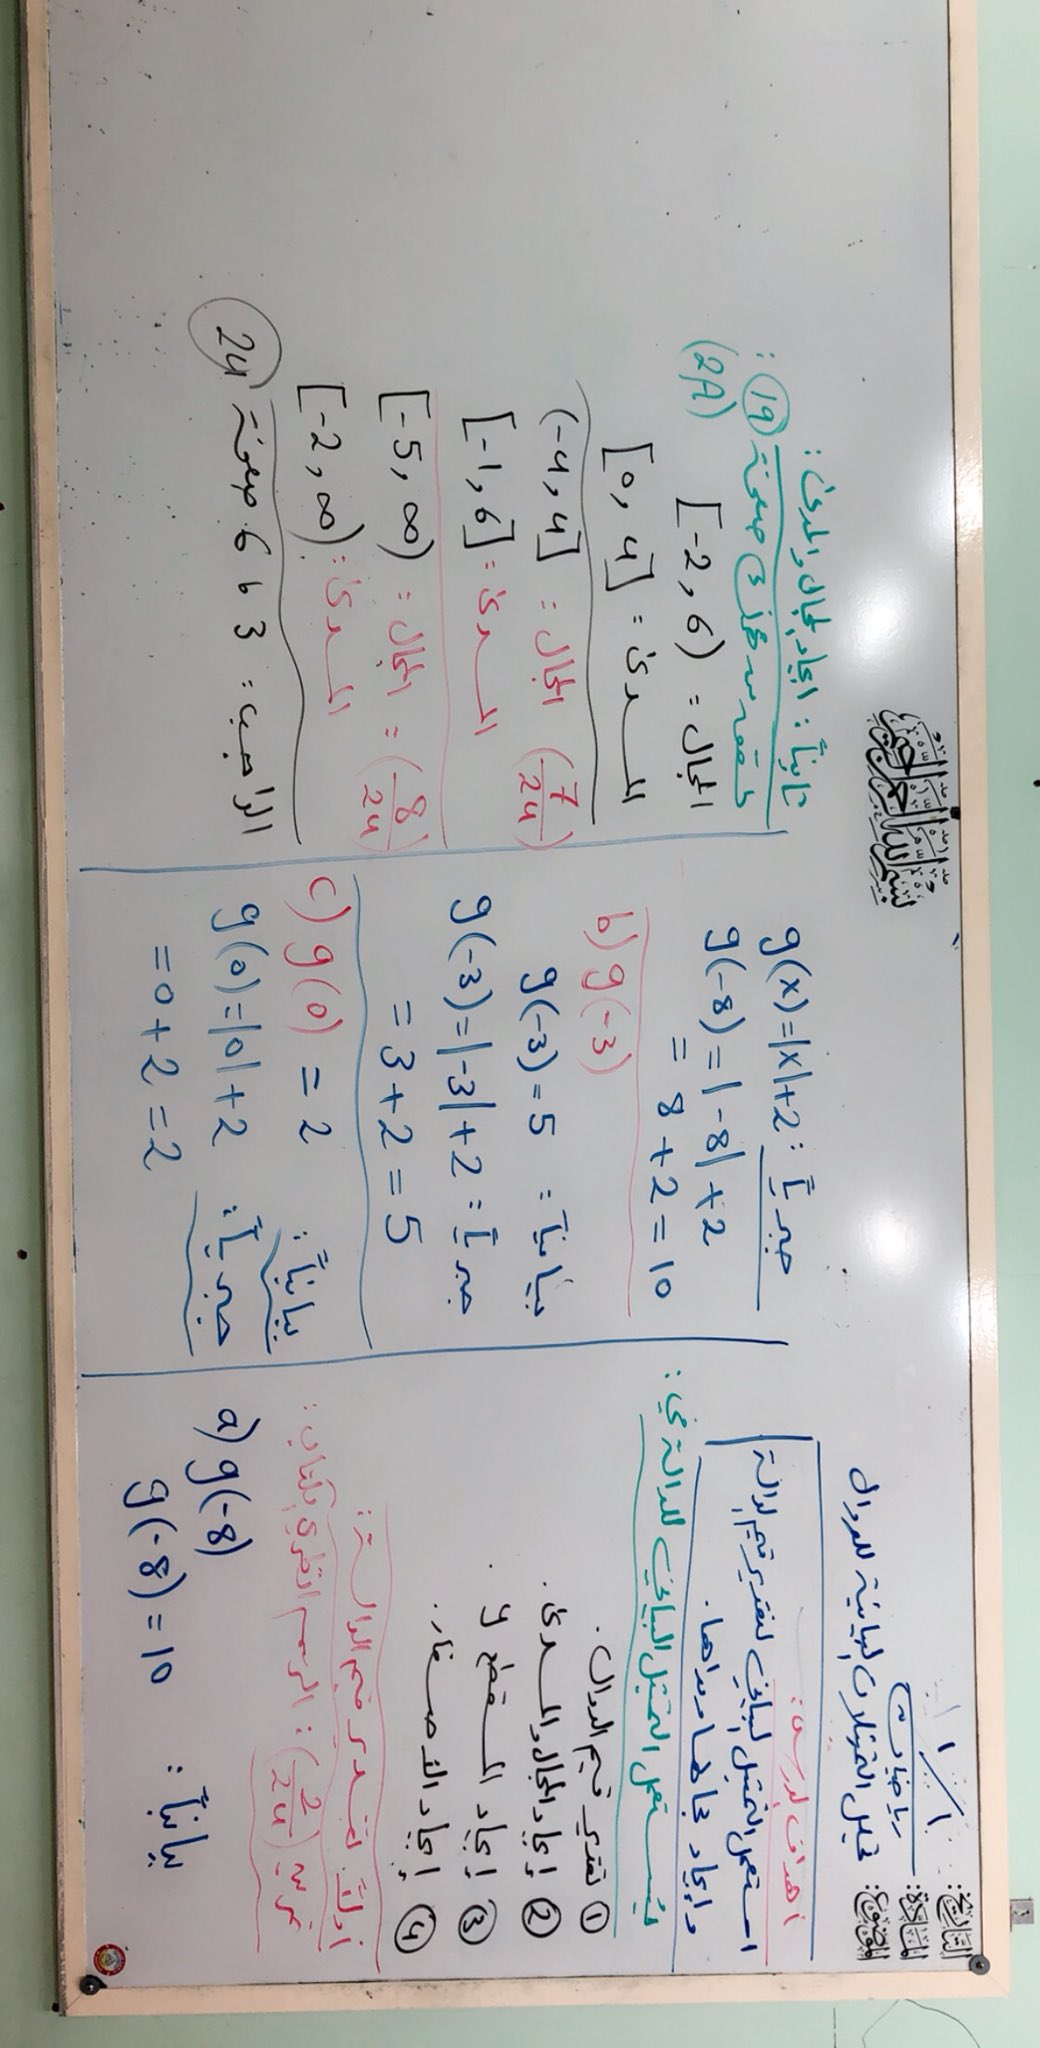 بسم الله الرحمن الرحيم
التاريخ: / / ١
المادة: رياضيات
الموضوع: تحليل التمثيلات البيانية للدوال
أهداف الدرس:
استعمل التمثيل البياني لتقدير قيم الدالة
وإيجاد مجالها ومداها.
يستعمل التمثيل البياني للدالة في:
① تقدير قيم الدوال.
② إيجاد المجال والمدى.
③ إيجاد المقطع y.
④ إيجاد الأصفار.
أولاً: تقدير قيم الدالة:
تمرين (2/24): الرسم النظري بالكتاب:
a) g(-8)
g(-8) = 10 بيانياً:
g(x)=|x|+2 : جبرياً
g(-8) = |-8| +2
= 8 +2 = 10
b) g(-3)
g(-3) = 5 : بيانياً
g(-3)=|-3|+2 : جبرياً
= 3+2 = 5
c) g(0) = 2 بيانياً:
g(0)=|0|+2 جبرياً:
=0+2 =2
ثانياً: إيجاد المجال والمدى:
تحقق من فهمك صفحة (19):
(2A)
[-2, 6) = المجال
[0, 4] = المدى
(-4, 4] : المجال (7/24)
[-1, 6] = المدى
[-5, ∞) : المجال = (8/24)
[-2, ∞) : المدى
الواجب: 3 ، 6 صفحة (24)